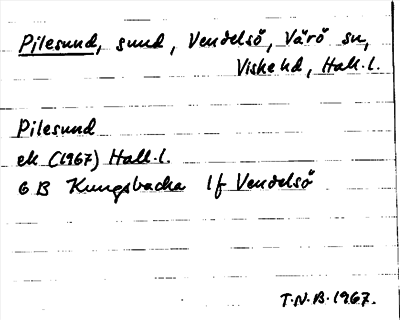 Pilesund, sund, Vendelsö, Värö sn,
Viske hd, Hall.l.
Pilesund
ek (1967) Hall.l.
6 B Kungsbacka 1f Vendelsö
T.N.B. 1967.